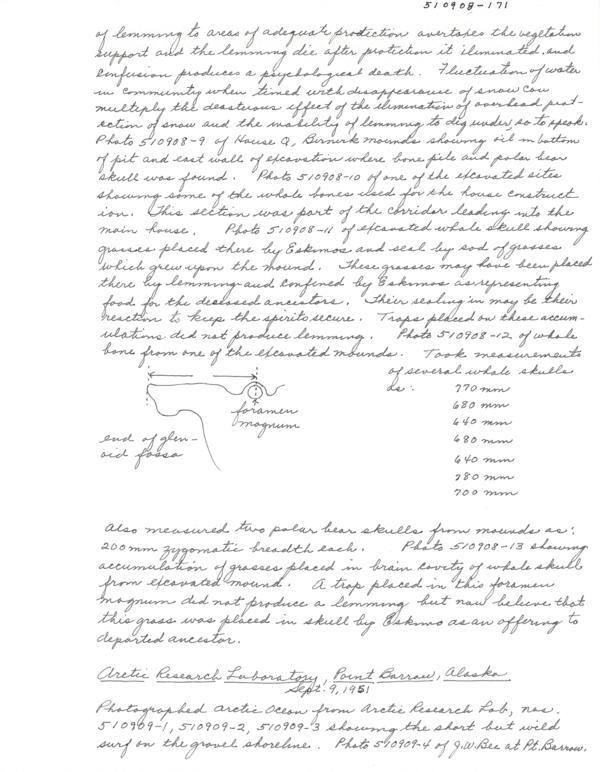 510908-171
of lemming to areas of adequate protection overtakes the vegetation
support and the lemming die after protection it iluminated and
confusion produces a psychological death. Fluctuation of water
in community when timed with disappearance of snow cou
multiply the deasterous effect of the ilumination of overhead prot-
ection of snow and the inability of lemming to dig under, so to speak.
Photo 510908-9 of House Q, Birnirk mounds showing oil in bottom
of pit and east wall of excavation where bone pile and polar bear
skull was found. Photo 510908-10 of one of the excavated sites
showing some of the whale bones used for the house construct
ion. This section was part of the corridor leading into the
main house. Photo 510908-11 of excavated whale skull showing
grasses placed there by Eskimos and seal by sod of grasses
which grew upon the mound. These grasses may have been placed
there by lemming and confined by Eskimos as representing
food for the deceased ancestors. Their sealing in may be their
reaction to keep the spirits secure. Traps placed on these accum-
ulations did not produce lemming. Photo 510908-12 of whale
bone from one of the excavated mounds. Took measurements
of several whale skulls
as: 770 mm
680 mm
640 mm
680 mm
640 mm
780 mm
700 mm
foramen
magnum
end of glen-
oid fossa
Also measured two polar bear skulls from mounds as:
200 mm zygomatic breadth each. Photo 510908-13 showing
accumulation of grasses placed in brain cavity of whale skull
from excavated mound. A trap placed in this foramen
magnum did not produce a lemming but now believe that
this grass was placed in skull by Eskimo as an offering to
departed ancestor.
Arctic Research Laboratory, Point Barrow, Alaska
Sept. 9, 1951
Photographed Arctic Ocean from Arctic Research Lab, nos.
510909-1, 510909-2, 510909-3 showing the short but wild
surf on the gravel shoreline. Photo 510909-4 of J.W. Bee at Pt. Barrow.